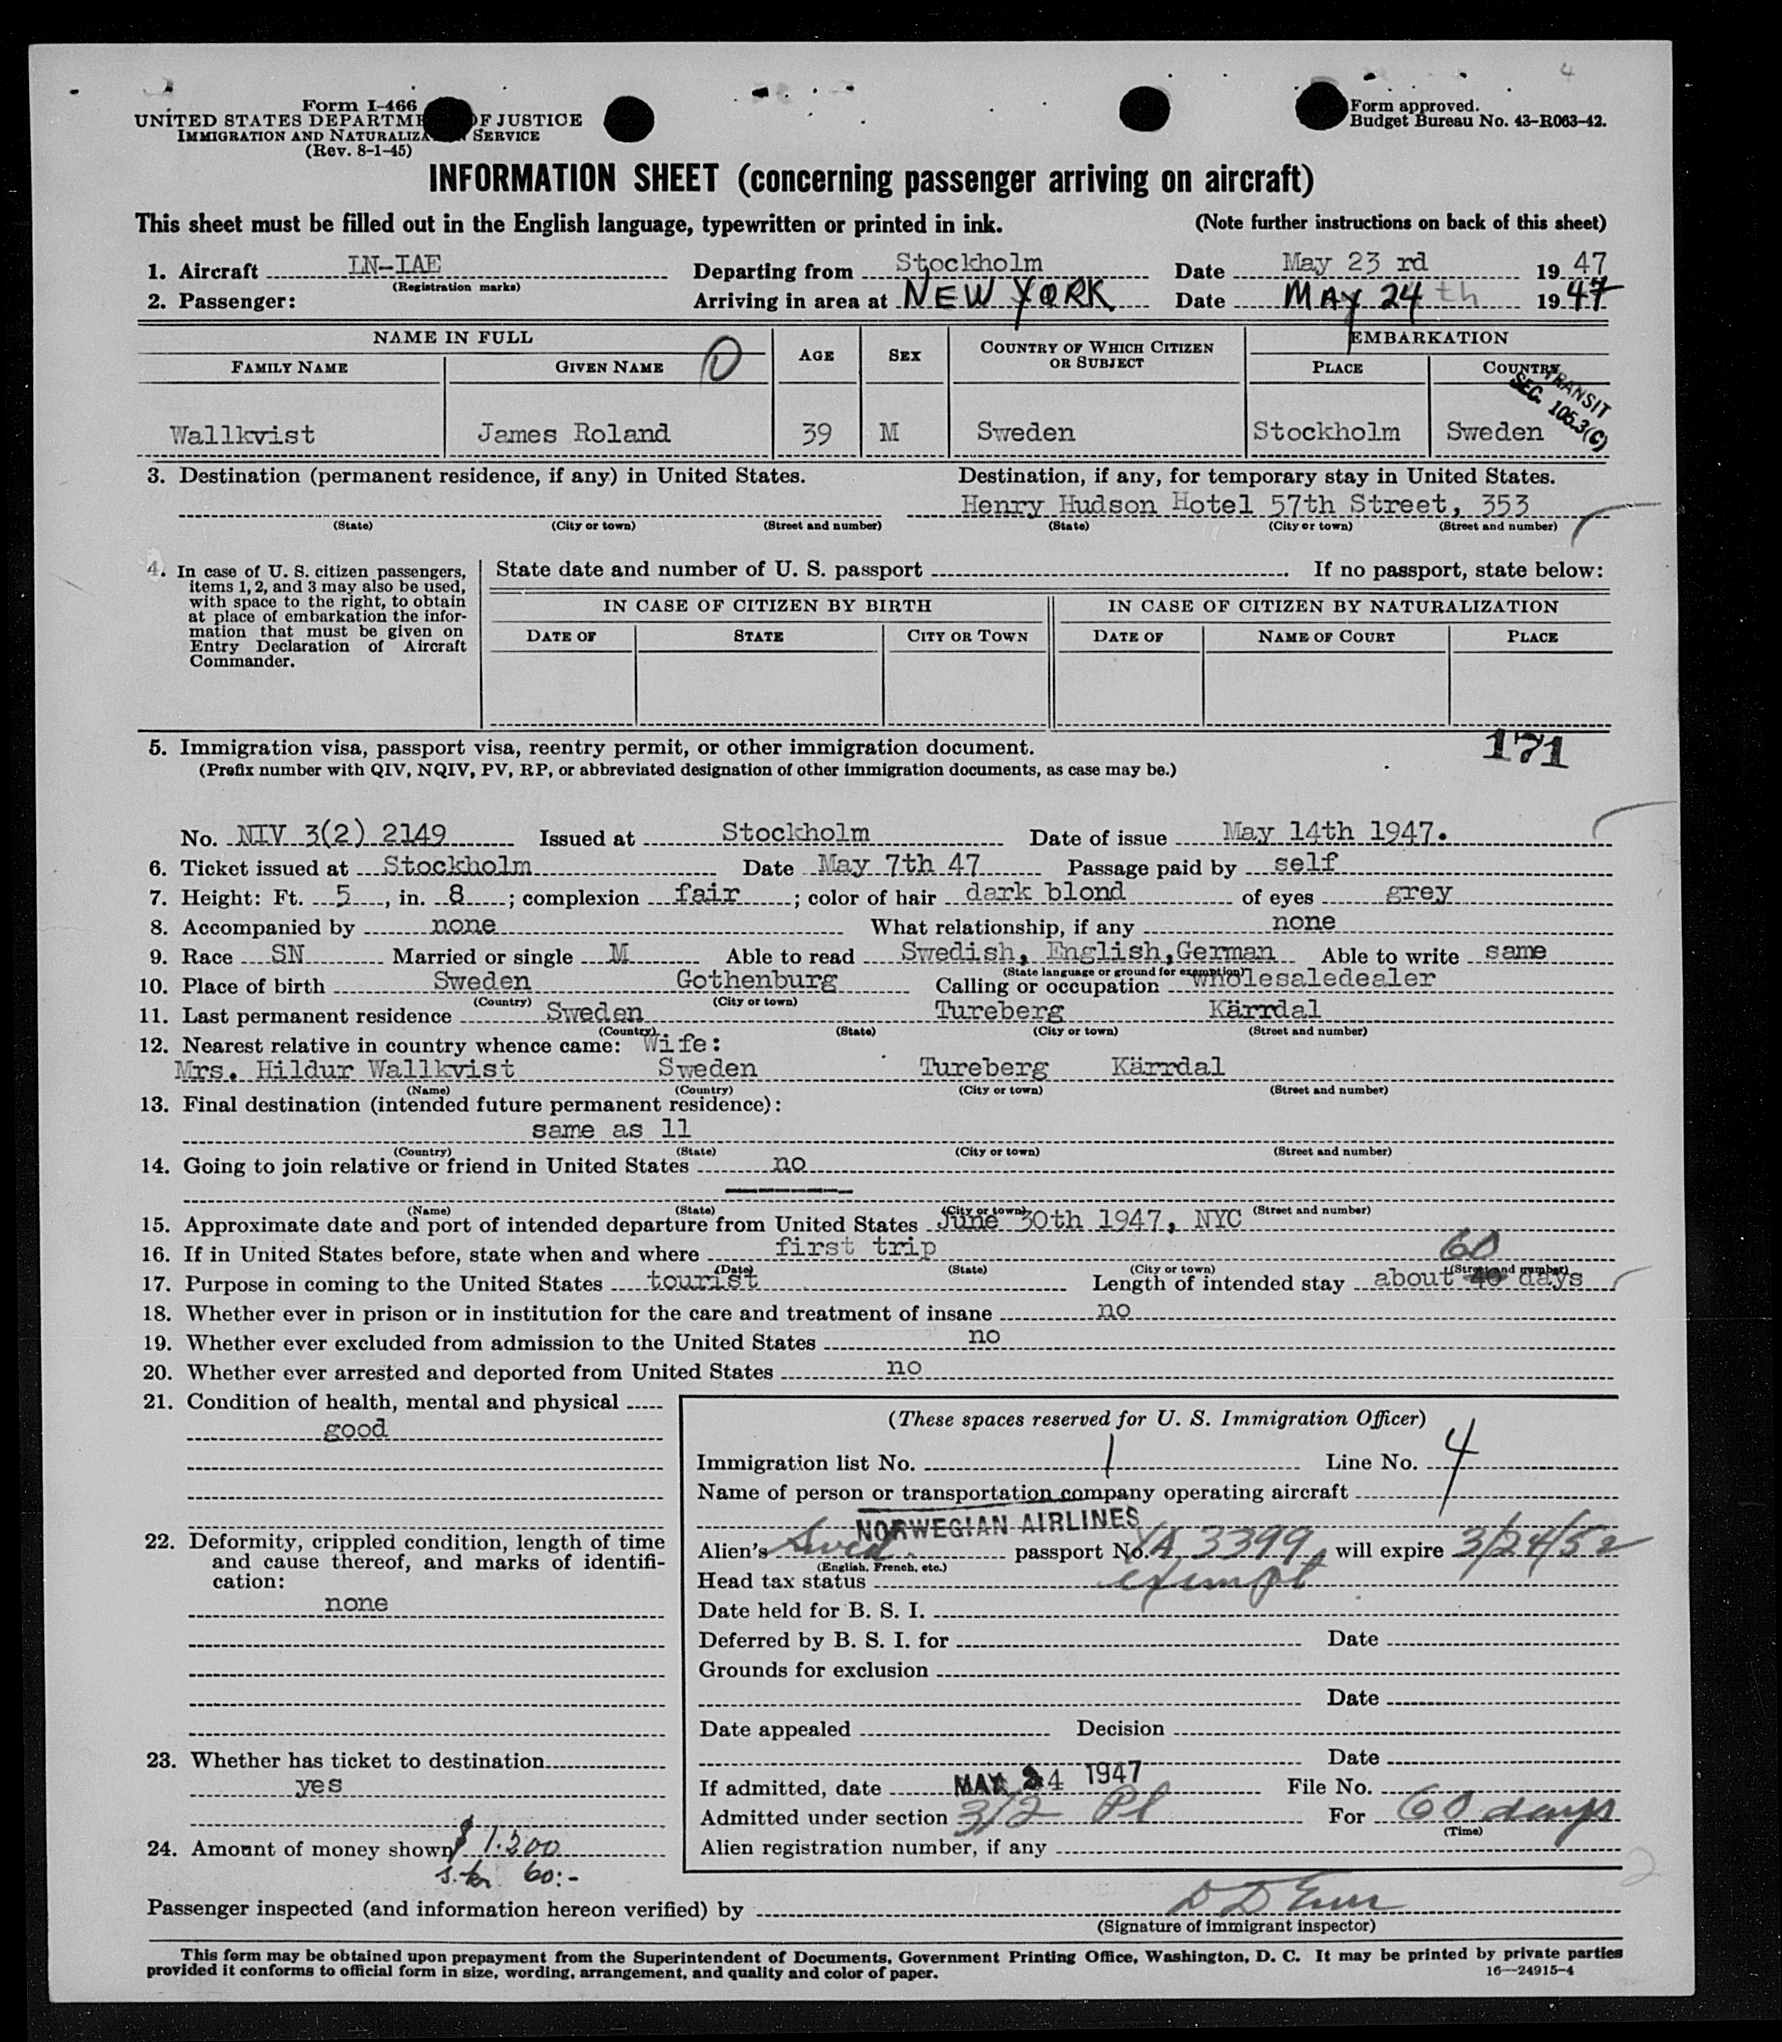 4
Form I-466
UNITED STATES DEPARTMENT OF JUSTICE
IMMIGRATION AND NATURALIZATION SERVICE
(Rev. 8-1-45)
Form approved.
Budget Bureau No. 43-R063-42.
INFORMATION SHEET (concerning passenger arriving on aircraft)
This sheet must be filled out in the English language, typewritten or printed in ink. (Note further instructions on back of this sheet)
1. Aircraft LN-IAE Departing from Stockholm Date May 23 rd 1947
(Registration marks)
2. Passenger: Arriving in area at NEW YORK Date MAY 24th 1947
NAME IN FULL AGE SEX COUNTRY OF WHICH CITIZEN OR SUBJECT EMBARKATION
FAMILY NAME GIVEN NAME PLACE COUNTRY
TRANSIT
SEC. 105.3(C)
Wallkvist James Roland 39 M Sweden Stockholm Sweden
3. Destination (permanent residence, if any) in United States. Destination, if any, for temporary stay in United States.
Henry Hudson Hotel 57th Street, 353
(State) (City or town) (Street and number) (State) (City or town) (Street and number)
4. In case of U. S. citizen passengers,
items 1, 2, and 3 may also be used,
with space to the right, to obtain
at place of embarkation the infor-
mation that must be given on
Entry Declaration of Aircraft
Commander.
State date and number of U. S. passport If no passport, state below:
IN CASE OF CITIZEN BY BIRTH IN CASE OF CITIZEN BY NATURALIZATION
DATE OF STATE CITY OR TOWN DATE OF NAME OF COURT PLACE
171
5. Immigration visa, passport visa, reentry permit, or other immigration document.
(Prefix number with QIV, NQIV, PV, RP, or abbreviated designation of other immigration documents, as case may be.)
No. NIV 3(2) 2149 Issued at Stockholm Date of issue May 14th 1947.
6. Ticket issued at Stockholm Date May 7th 47 Passage paid by self
7. Height: Ft. 5, in. 8; complexion fair; color of hair dark blond of eyes grey
8. Accompanied by none What relationship, if any none
9. Race SN Married or single M Able to read Swedish, English,German Able to write same
(State language or ground for exemption)
10. Place of birth Sweden Gothenburg Calling or occupation wholesaledealer
(Country) (City or town)
11. Last permanent residence Sweden Tureberg Kärrdal
(Country) (State) (City or town) (Street and number)
12. Nearest relative in country whence came: Wife:
Mrs. Hildur Wallkvist Sweden Tureberg Kärrdal
(Name) (Country) (City or town) (Street and number)
13. Final destination (intended future permanent residence):
same as 11
(Country) (State) (City or town) (Street and number)
14. Going to join relative or friend in United States no
(Name) (State) (City or town) (Street and number)
15. Approximate date and port of intended departure from United States June 30th 1947, NYC
16. If in United States before, state when and where first trip
(Date) (State) (City or town) (Street and number)
60
17. Purpose in coming to the United States tourist Length of intended stay about 40 days
18. Whether ever in prison or in institution for the care and treatment of insane no
19. Whether ever excluded from admission to the United States no
20. Whether ever arrested and deported from United States no
21. Condition of health, mental and physical
good
22. Deformity, crippled condition, length of time
and cause thereof, and marks of identifi-
cation:
none
23. Whether has ticket to destination
yes
24. Amount of money shown $ 1.300
s.kr 60:-
(These spaces reserved for U. S. Immigration Officer)
Immigration list No. 1 Line No. 4
Name of person or transportation company operating aircraft
NORWEGIAN AIRLINES
Alien's Swed. passport No. YA 3399 will expire 3/24/52
(English, French, etc.)
Head tax status exempt
Date held for B. S. I.
Deferred by B. S. I. for Date
Grounds for exclusion
Date
Date appealed Decision
Date
If admitted, date MAY 24 1947 File No.
Admitted under section 3/2 Pl For 60 days
(Time)
Alien registration number, if any
2
Passenger inspected (and information hereon verified) by
(Signature of immigrant inspector)
This form may be obtained upon prepayment from the Superintendent of Documents, Government Printing Office, Washington, D. C. It may be printed by private parties
provided it conforms to official form in size, wording, arrangement, and quality and color of paper. 16—24915-4